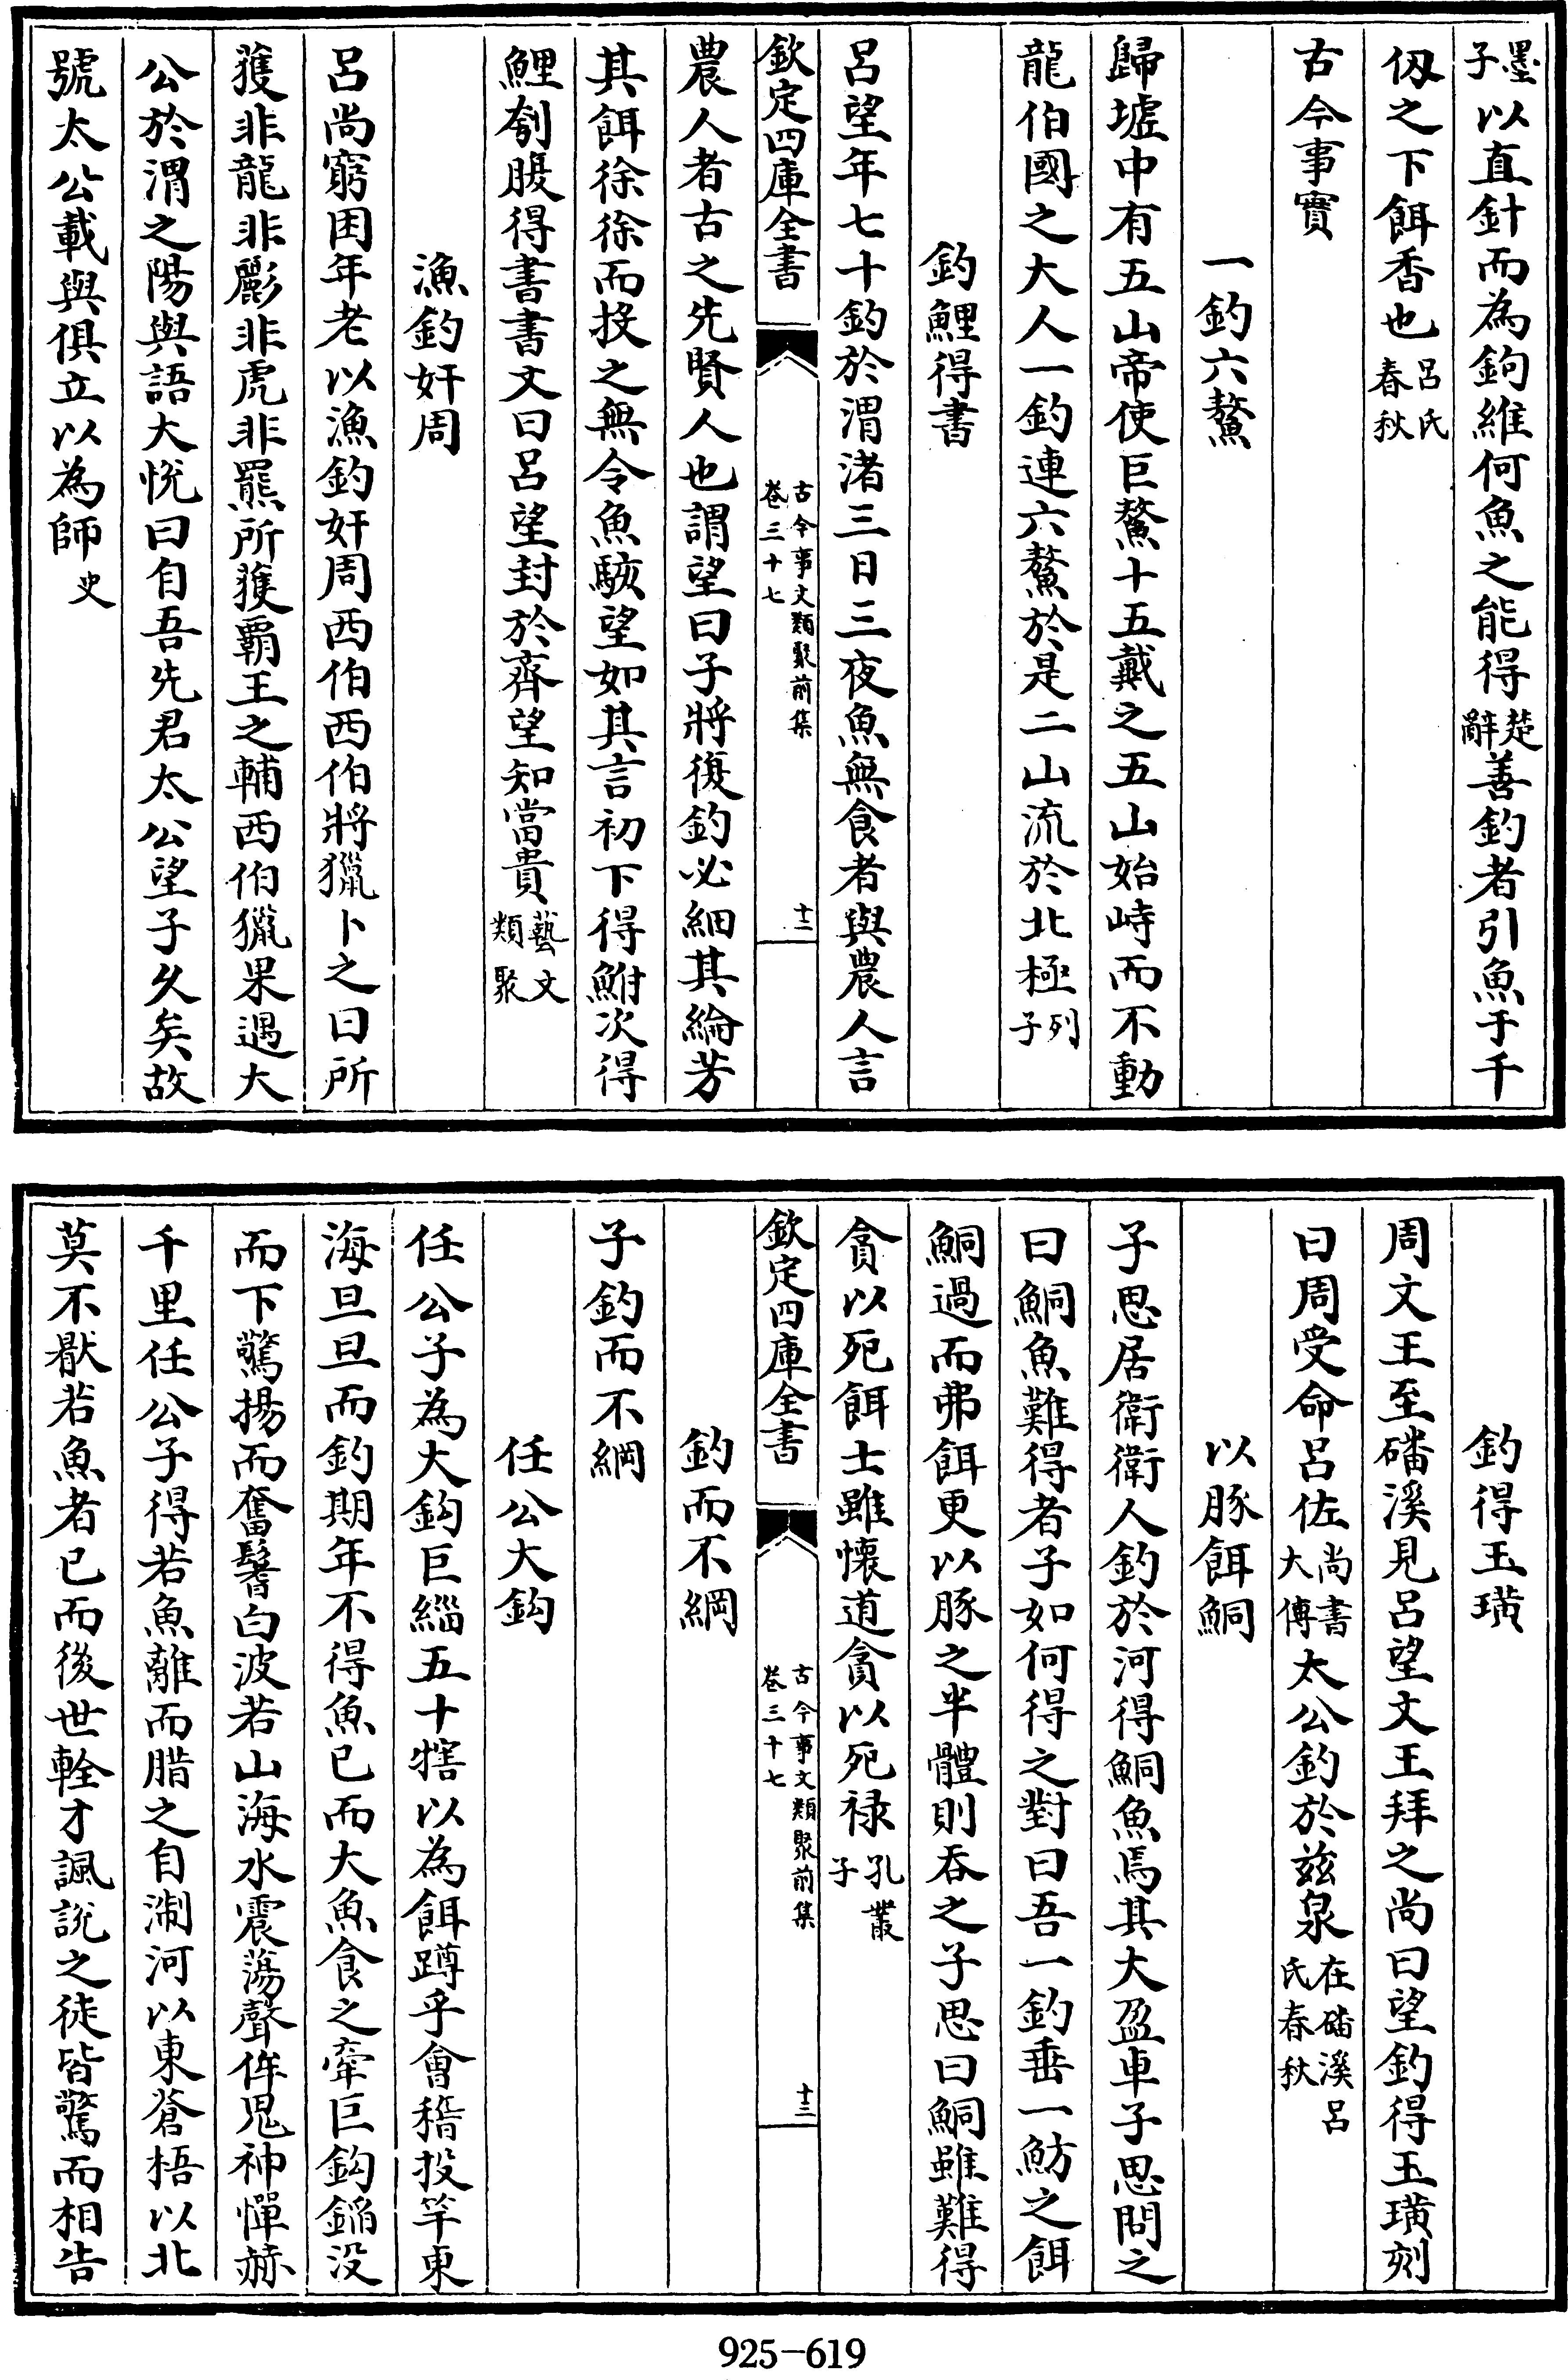 墨子以直針而為鉤維何魚之能得楚辭善釣者引魚于千
仭之下餌香也呂氏春秋
古今事實
一釣六鰲
歸墟中有五山帝使巨鰲十五戴之五山始峙而不動
龍伯國之大人一釣連六鰲於是二山流於北極列子
釣鯉得書
呂望年七十釣於渭渚三日三夜魚無食者與農人言
欽定四庫全書 古今事文類聚前集卷三十七 十二
農人者古之先賢人也謂望曰子將復釣必細其綸芳
其餌徐徐而投之無令魚駭望如其言初下得鮒次得
鯉刳腹得書書文曰呂望封於齊望知當貴藝文類聚
漁釣奸周
呂尚窮困年老以漁釣奸周西伯西伯將獵卜之曰所
獲非龍非彲非虎非羆所獲霸王之輔西伯獵果遇大
公於渭之陽與語大悅曰自吾先君太公望子久矣故
號太公載與俱立以為師史
釣得玉璜
周文王至磻溪見呂望文王拜之尚曰望釣得玉璜刻
曰周受命呂佐尚書大傳太公釣於兹泉在磻溪呂氏春秋
以豚餌鮦
子思居衛衛人釣於河得鮦魚焉其大盈車子思問之
曰鮦魚難得者子如何得之對曰吾一釣垂一魴之餌
鮦過而弗餌更以豚之半體則吞之子思曰鮦雖難得
貪以死餌士雖懷道貪以死禄孔叢子
欽定四庫全書 古今事文類聚前集卷三十七 十三
釣而不綱
子釣而不綱
任公大鈎
任公子為大鈎巨緇五十犗以為餌蹲乎會稽投竿東
海旦旦而釣期年不得魚已而大魚食之牽巨鈎錎没
而下驚揚而奮鬐白波若山海水震蕩聲侔鬼神憚赫
千里任公子得若魚離而腊之自淛河以東蒼梧以北
莫不厭若魚者已而後世輇才諷說之徒皆驚而相告
925-619